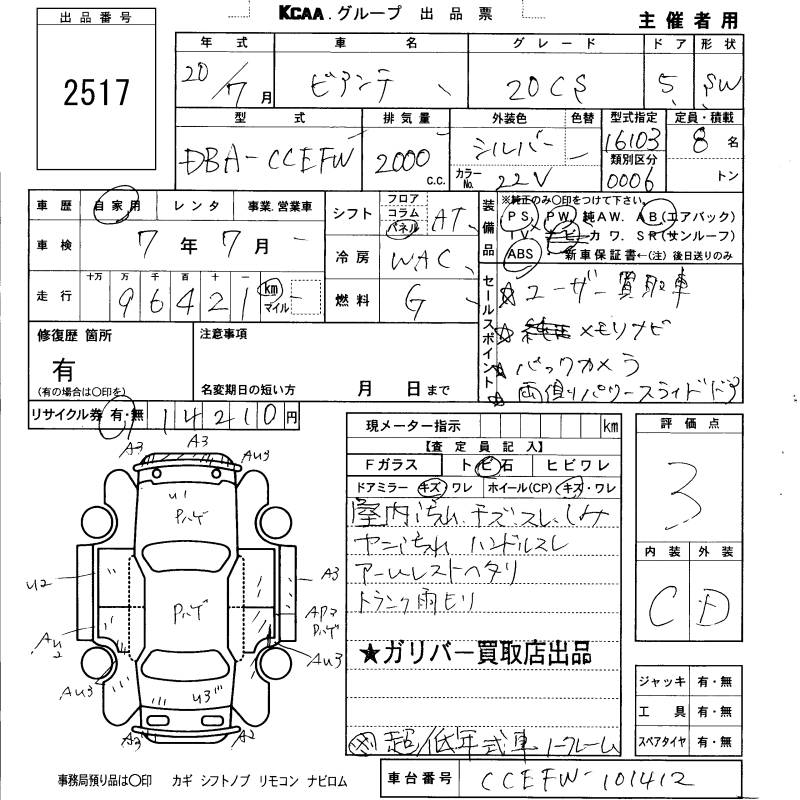 KCAA.グループ 出品票
主催者用
出品番号
2517
年式 車名 グレード ドア 形状
20/7月 ビアンテ 20CS 5 SW
型式 排気量 外装色 色替 型式指定 定員・積載
DBA-CCEFW 2000 c.c. シルバー 16103 8名
カラーNo. 22V 類別区分 0006 トン
車歴 自家用 レンタ 事業.営業車
車検 7年7月
走行 十万 万 千 百 十 一
96421 km マイル
シフト フロア コラム パネル AT
冷房 WAC
燃料 G
装備品 ※純正のみ〇印をつけて下さい。
PS PW 純AW. AB(エアバック)
TV ナビ カワ. SR(サンルーフ)
ABS 新車保証書←(注) 後日送りのみ
セールスポイント
☆ユーザー買取車
☆純正 メモリナビ
☆バックカメラ
☆両側パワースライドドア
修復歴 箇所
有
(有の場合は〇印を)
注意事項
名変期日の短い方 月 日まで
リサイクル券 有・無 14210円
現メーター指示 km
【査定員記入】
Fガラス トビ石 ヒビワレ
ドアミラー キズ ワレ ホイール(CP) キズ・ワレ
室内汚れ.キズ.スレ.シミ
ヤニ汚れ ハンドルスレ
アームレストヘタリ
トランク雨モリ
★ガリバー買取店出品
超低年式車 ノークレーム
評価点
3
内装 外装
C D
ジャッキ 有・無
工具 有・無
スペアタイヤ 有・無
A3 A3 AU3
U1
Pハゲ
U2 A3
Pハゲ
AP2
Pハゲ
AU2 AU3
AU3
U3
A2 A2
事務局預り品は〇印 カギ シフトノブ リモコン ナビロム
車台番号 CCEFW-101412